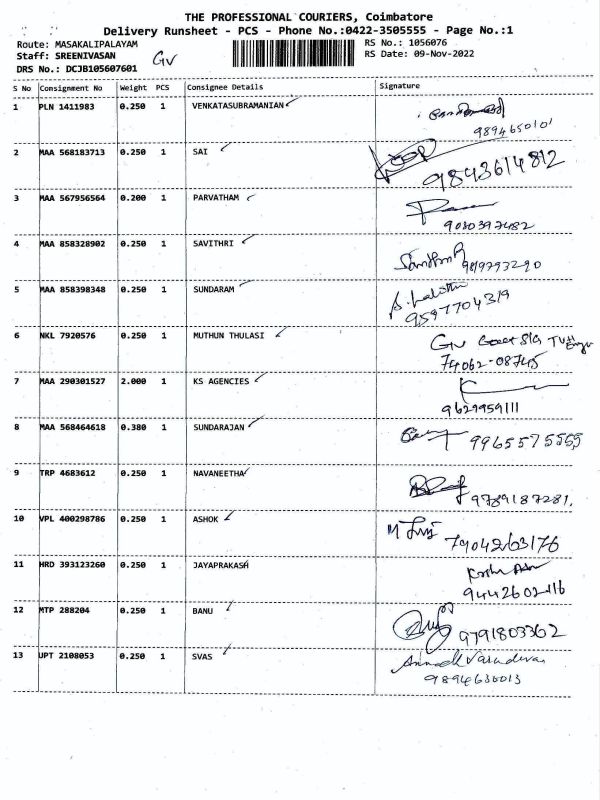 THE PROFESSIONAL COURIERS, Coimbatore
Delivery Runsheet - PCS - Phone No.:0422-3505555 - Page No.:1
Route: MASAKALIPALAYAM RS No.: 1056076
Staff: SREENIVASAN GV RS Date: 09-Nov-2022
DRS No.: DCJB105607601
S No Consignment No Weight PCS Consignee Details Signature
1 PLN 1411983 0.250 1 VENKATASUBRAMANIAN
989465010
2 MAA 568183713 0.250 1 SAI
9843614812
3 MAA 567956564 0.200 1 PARVATHAM
9080397482
4 MAA 858328902 0.250 1 SAVITHRI
9. MAA 858398348 0.250 1 SUNDARAM
9597704319
6 NKL 7920576 0.250 1 MUTHUN THULASI
74062-08745
7 MAA 290301527 2.000 1 KS AGENCIES
9629959111
8 MAA 568464618 0.380 1 SUNDARAJAN
9965575555
9 TRP 4683612 0.250 1 NAVANEETHA
9789187281.
10 VPL 400298786 0.250 1 ASHOK
7904263176
11 HRD 393123260 0.250 1 JAYAPRAKASH
9442602116
12 MTP 288204 0.250 1 BANU
9791803362
13 UPT 2108053 0.250 1 SVAS
9894636013